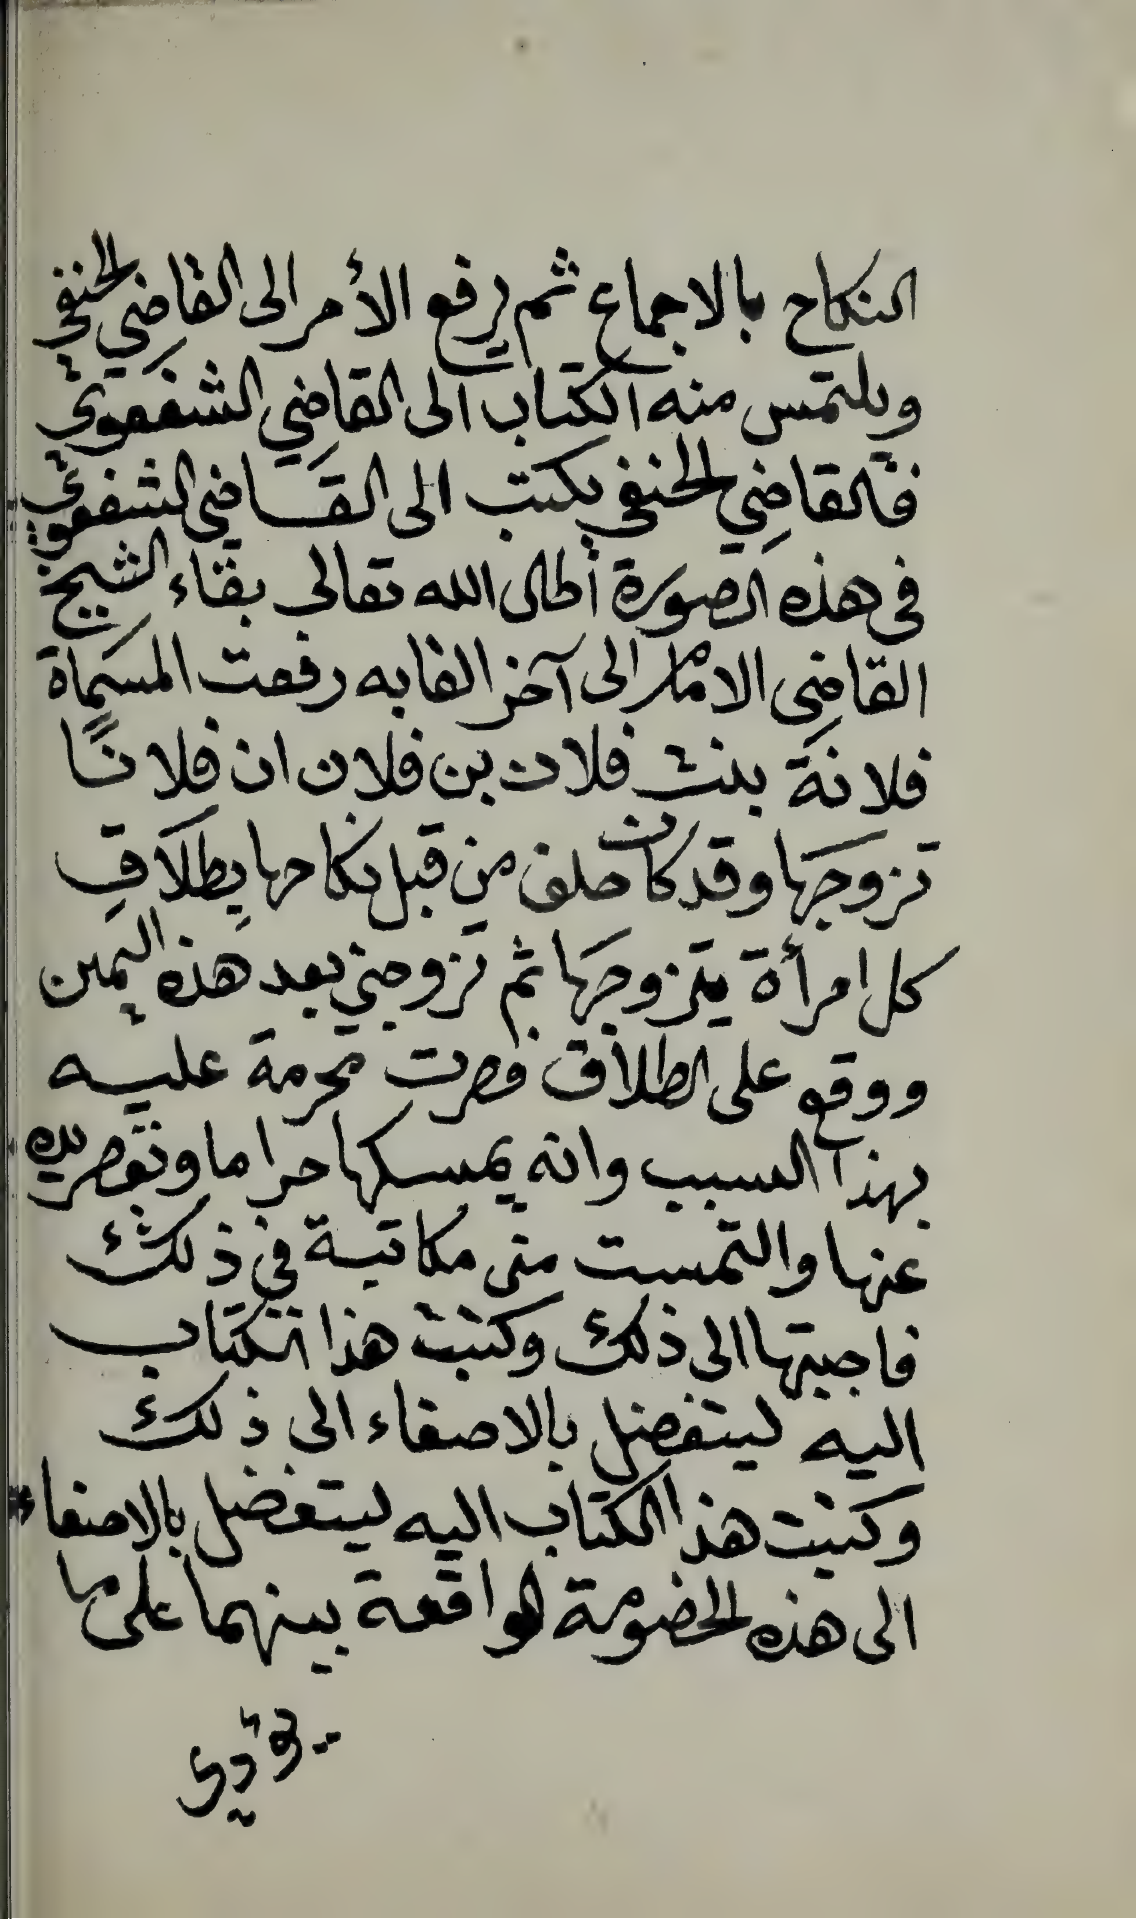 النكاح بالاجماع ثم يرفع الأمر الى القاضي الحنفي
ويلتمس منه الكتاب الى القاضي الشفعوي
فالقاضي الحنفي يكتب الى القاضي الشفعوي
في هذه الصورة أطال الله تعالى بقاء الشيخ
القاضي الامام الى آخر القابه رفعت المسماة
فلانة بنت فلان بن فلان ان فلانًا
تزوجها وقد كان حلف من قبل نكاحها بطلاق
كل امرأة يتزوجها ثم تزوجني بعد هذه اليمين
ووقع على الطلاق فصرت محرمة عليه
بهذا السبب وانه يمسكها حراما وتقصر يده
عنها والتمست منى مكاتبة في ذلك
فاجبتها الى ذلك وكتبت هذا الكتاب
اليه ليتفضل بالاصغاء الى ذلك
وكتبت هذا الكتاب اليه ليتفضل بالاصغاء
الى هذه الخصومة الواقعة بينهما على ما
يؤدي